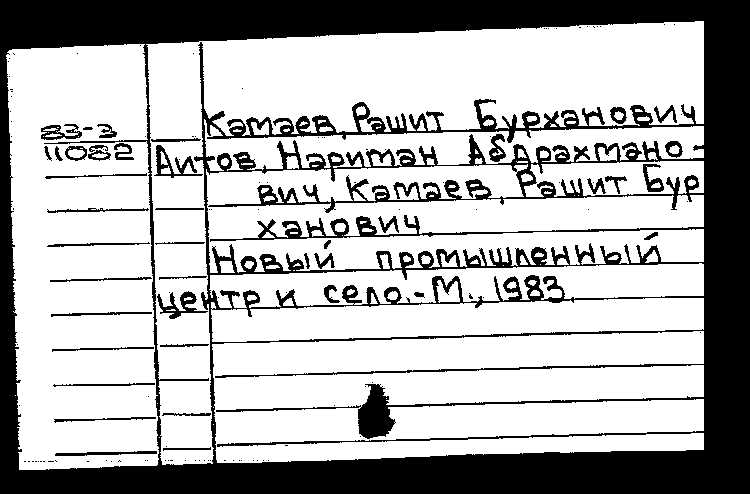 Камаев, Рашит Бурханович
83-3
11082
Аитов, Нариман Абдрахмано-
вич, Камаев, Рашит Бур
ханович.
Новый промышленный
центр и село.-М., 1983.